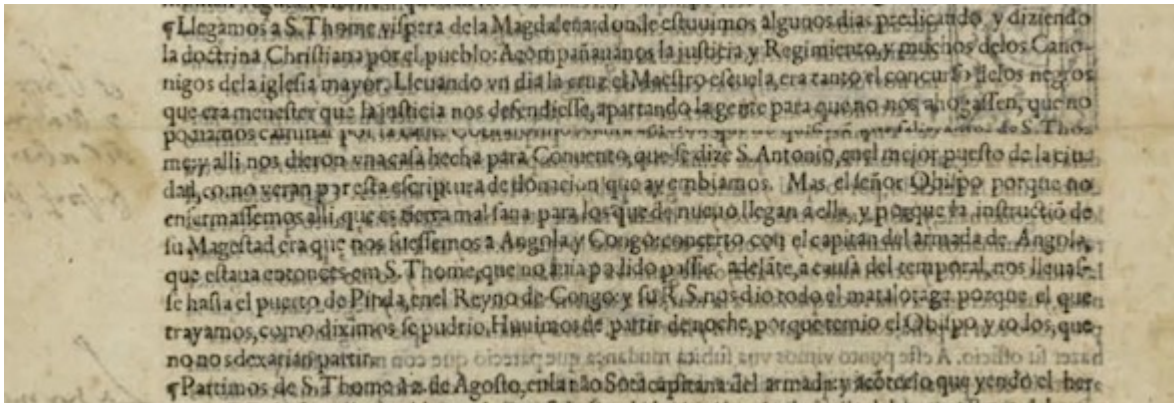 ¶Llegamos a S. Thome vispera dela Magdalena: donde estuuimos algunos dias predicando, y diziendo
la doctrina Christiana por el pueblo: Acompañauanos la justicia y Regimiento, y muchos delos Cano-
nigos dela iglesia mayor. Lleuando vn dia la cruz el Maestro escuela, era tanto el concurso delos negros
que era menester que la justicia nos defendiesse, apartando la gente para que no nos ahogassen, que no
podiamos caminar por la de S. Tho-
me: y alli nos dieron vna casa hecha para Conuento, que se dize S. Antonio, enel mejor puesto de la ciu-
dad, como veran por esta escriptura de donacion que ay embiamos. Mas el señor Obispo porque no
enfermassemos alli, que es tierra mal sana para los que de nueuo llegan a ella, y porque la instructiõ de
su Magestad era que nos fuessemos a Angola y Congo: concerto con el capitan del armada de Angola,
que estaua entonces em S. Thome, que no auia podido passar adelãte, a causa del temporal, nos lleuas-
se hasta el puerto de Pinda, enel Reyno de Congo: y su R. S. nos dio todo el matalotage porque el que
trayamos, como diximos se pudrio. Huuimos de partir de noche, porque temio el Obispo y todos, que
no nos dexarian partir.
¶Partimos de S. Thome a 2. de Agosto, enla não capitana del armada: y acõtecio que yendo el